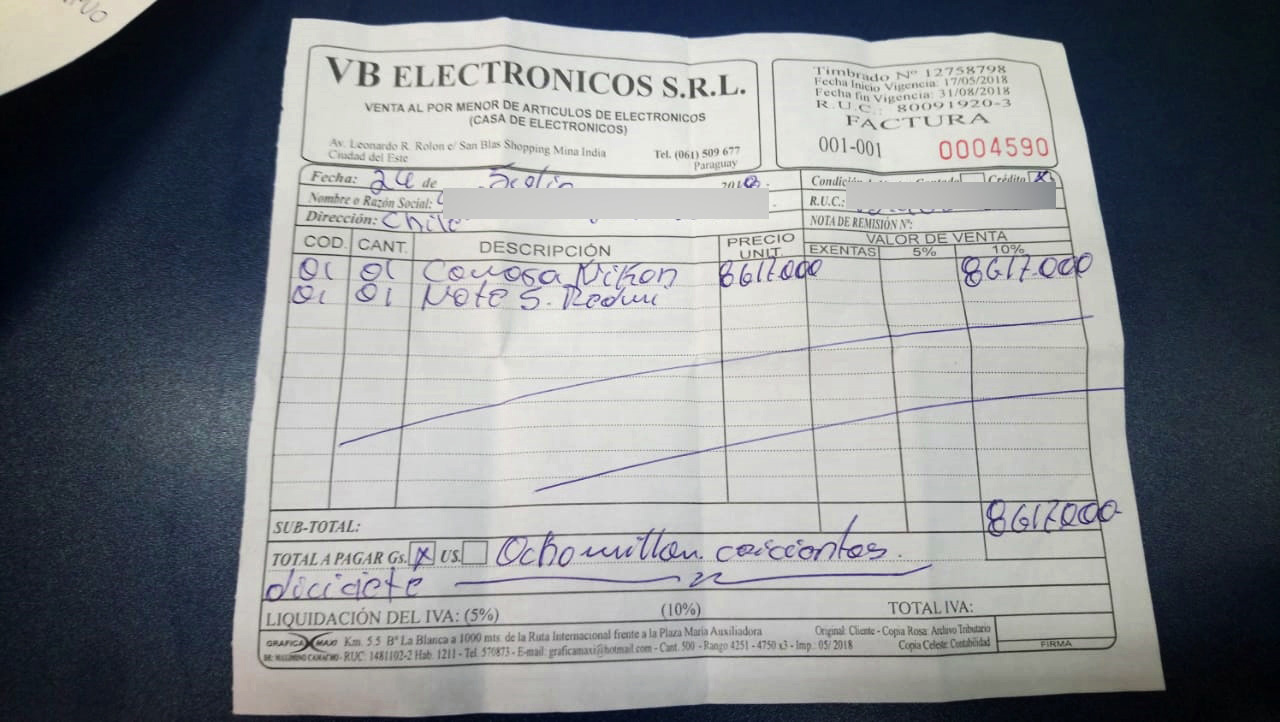 VB ELECTRONICOS S.R.L.
VENTA AL POR MENOR DE ARTICULOS DE ELECTRONICOS
(CASA DE ELECTRONICOS)
Av. Leonardo R. Rolon e/ San Blas Shopping Mina India
Ciudad del Este
Tel. (061) 509 677
Paraguay
Timbrado Nº 12758798
Fecha Inicio Vigencia: 17/05/2018
Fecha fin Vigencia: 31/08/2018
R.U.C.: 80091920-3
FACTURA
001-001 0004590
Fecha: 24 de 2018.
Crédito X
Nombre o Razón Social:
R.U.C.:
Dirección:
NOTA DE REMISIÓN Nº:
COD. CANT. DESCRIPCIÓN PRECIO UNIT. VALOR DE VENTA
EXENTAS 5% 10%
01 01 Nikon 8617.000 8617.000
01 01 Note 5. Redmi
SUB-TOTAL: 8617.000
TOTAL A PAGAR Gs. X US. Ocho millon ceiccontas.
diciciete
LIQUIDACIÓN DEL IVA: (5%) (10%) TOTAL IVA:
GRAFICA MAXI Km. 5.5 Bº La Blanca a 1000 mts. de la Ruta Internacional frente a la Plaza Maria Auxiliadora
DE: MAXIMINO CAMACHO - RUC: 1481102-2 Hab. 1211 - Tel. 570873 - E-mail: graficamaxi@hotmail.com - Cant. 500 - Rango 4251 - 4750 x3 - Imp.: 05/ 2018
Original: Cliente - Copia Rosa: Archivo Tributario
Copia Celeste: Contabilidad
FIRMA